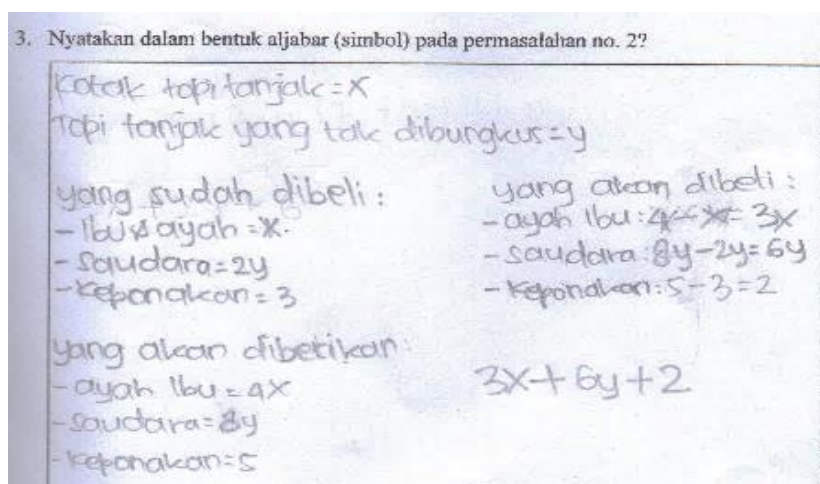 3. Nyatakan dalam bentuk aljabar (simbol) pada permasalahan no. 2?
Kotak topi tanjak = x
Topi tanjak yang tak dibungkus = y
yang sudah dibeli :
- Ibu & ayah = x.
- Saudara = 2y
- Keponakan = 3
yang akan dibelikan:
- ayah Ibu = 4x
- Saudara = 8y
- Keponakan = 5
yang akan dibeli :
- ayah Ibu : 4x - x = 3x
- saudara : 8y - 2y = 6y
- Keponakan : 5 - 3 = 2
3x + 6y + 2